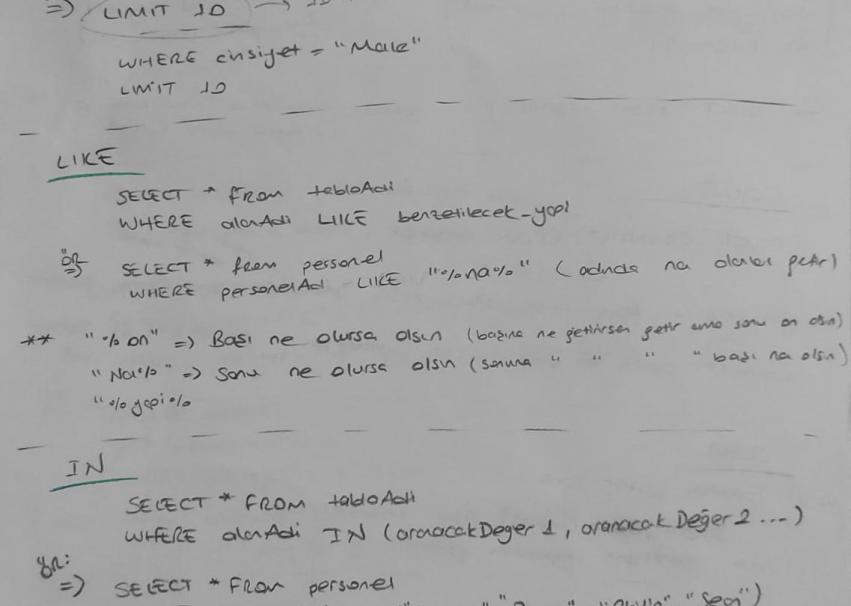 => LIMIT 10 →
WHERE cinsiyet = "Male"
LIMIT 10
LIKE
SELECT * from tabloAdi
WHERE alanAdi LIKE benzetilecek_yapi
ÖR => SELECT * from personel
WHERE personelAdi LIKE "%na%" (adında na olanları getir)
** "%an" => Başı ne olursa olsun (başına ne getirirsen getir ama sonu an olsun)
"Na%" => sonu ne olursa olsun (sonuna " " " " başı na olsun)
"%yapi%
IN
SELECT * FROM tabloAdi
WHERE alanAdi IN (aranacakDeger1, aranacakDeğer2...)
ÖR:
=> SELECT * From personel